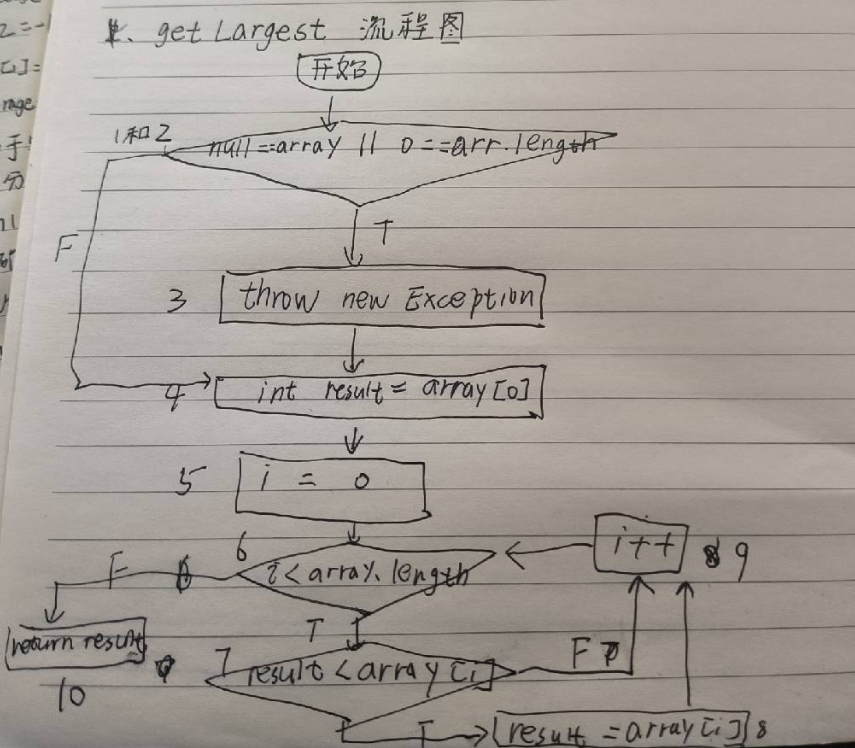 1. getLargest 流程图
开始
1和2
null==array || 0==arr.length
F
T
3 throw new Exception
4 int result = array[0]
5 i = 0
6 i<array.length
i++ 9
F
T
return result
10
7 result <array[i]
F
T
result =array[i] 8